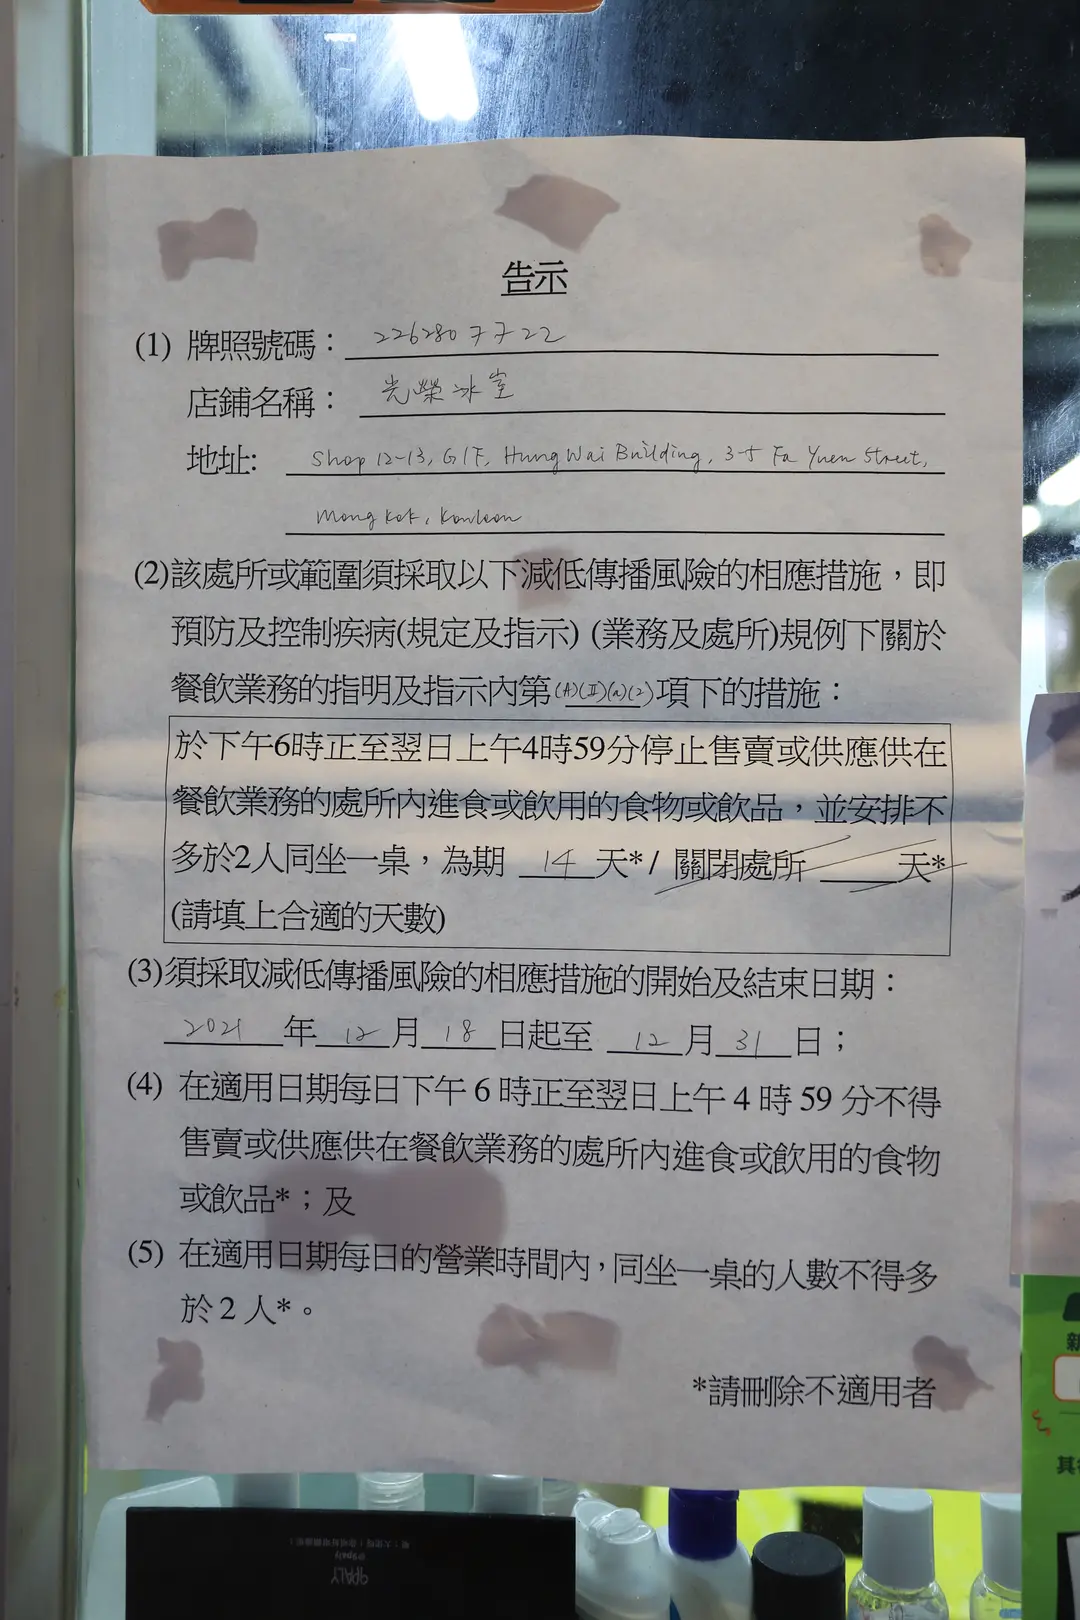 告示
(1) 牌照號碼：2262807722
店鋪名稱：光榮冰室
地址: Shop 12-13, G/F, Hung Wai Building, 3-5 Fa Yuen Street,
Mong Kok, Kowloon
(2)該處所或範圍須採取以下減低傳播風險的相應措施，即
預防及控制疾病(規定及指示) (業務及處所)規例下關於
餐飲業務的指明及指示內第(A)(II)(a)(2)項下的措施：
於下午6時正至翌日上午4時59分停止售賣或供應供在
餐飲業務的處所內進食或飲用的食物或飲品，並安排不
多於2人同坐一桌，為期 14 天* / 關閉處所 ____天*
(請填上合適的天數)
(3)須採取減低傳播風險的相應措施的開始及結束日期：
2021 年 12 月 18 日起至 12 月 31 日；
(4) 在適用日期每日下午 6 時正至翌日上午 4 時 59 分不得
售賣或供應供在餐飲業務的處所內進食或飲用的食物
或飲品*；及
(5) 在適用日期每日的營業時間內，同坐一桌的人數不得多
於 2 人*。
*請刪除不適用者
新
其